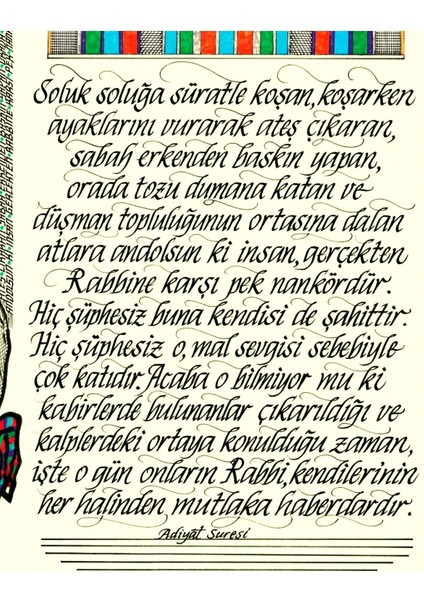 Soluk soluğa süratle koşan, koşarken
ayaklarını vurarak ateş çıkaran,
sabah erkenden baskın yapan,
orada tozu dumana katan ve
düşman topluluğunun ortasına dalan
atlara andolsun ki insan, gerçekten
Rabbine karşı pek nankördür.
Hiç şüphesiz buna kendisi de şahittir.
Hiç şüphesiz o, mal sevgisi sebebiyle
çok katıdır. Acaba o bilmiyor mu ki
kabirlerde bulunanlar çıkarıldığı ve
kalplerdeki ortaya konulduğu zaman,
işte o gün onların Rabbi, kendilerinin
her halinden mutlaka haberdardır.
Adiyât Suresi